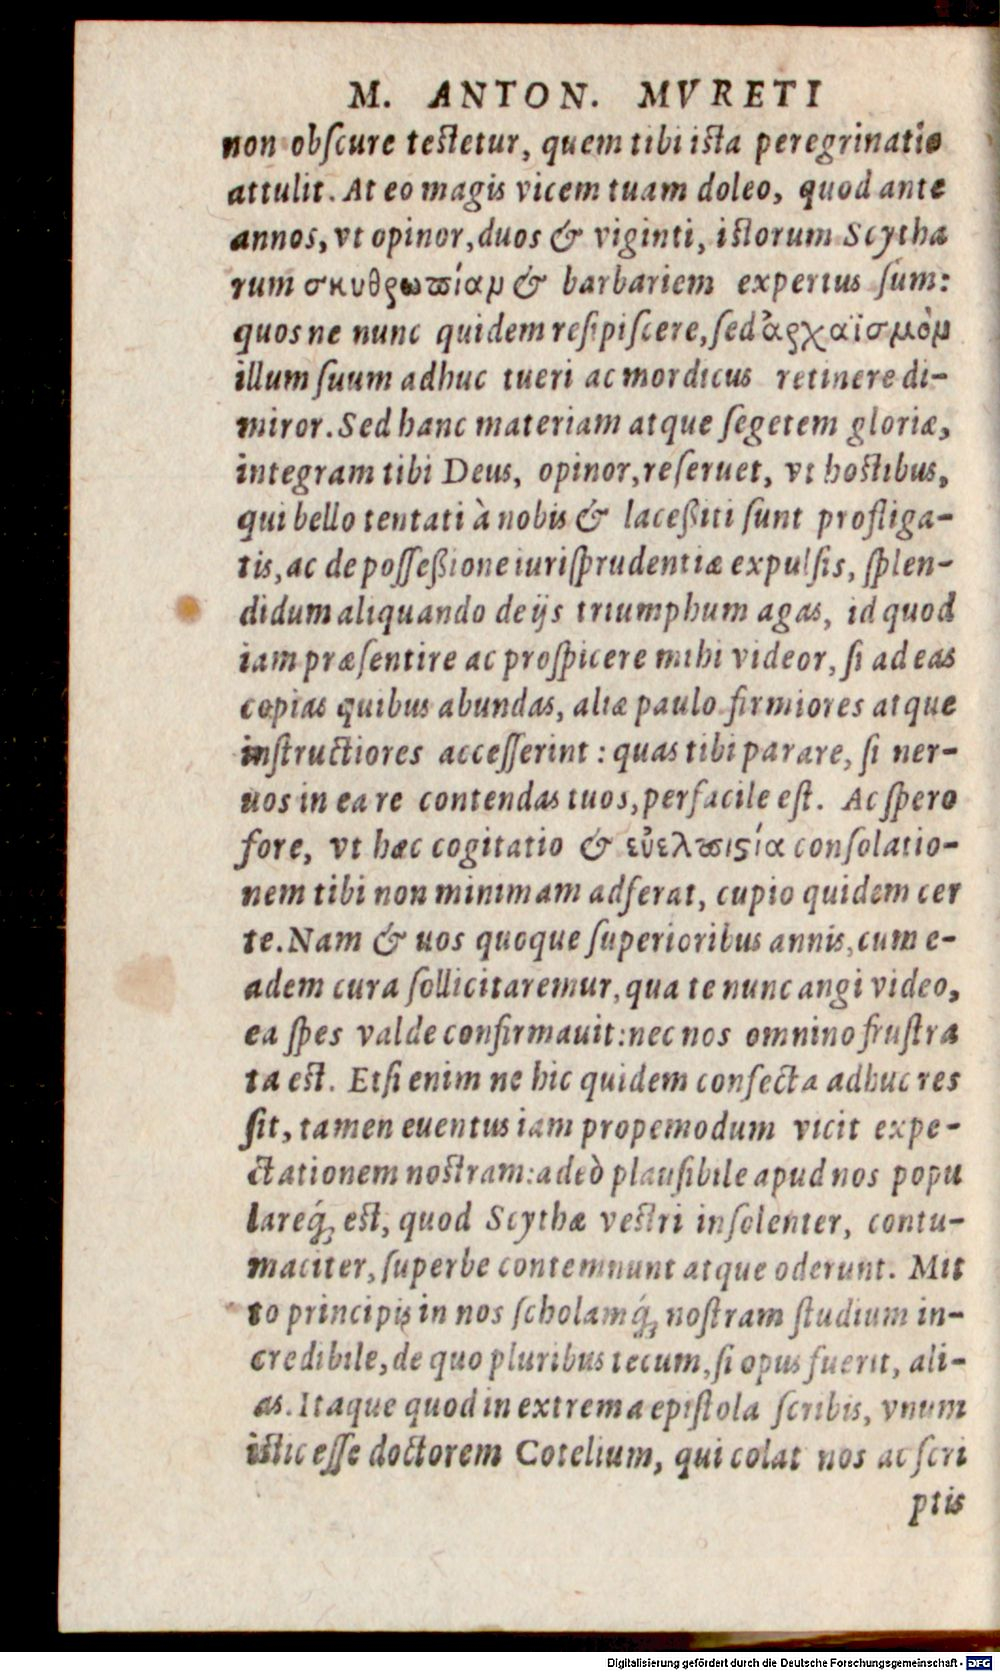 M. ANTON. MVRETI
non obſcure teſtetur, quem tibi iſta peregrinatio
attulit. At eo magis vicem tuam doleo, quod ante
annos, vt opinor, duos & viginti, iſtorum Scytha
rum σκυθρωπίαν & barbariem expertus ſum:
quos ne nunc quidem reſipiſcere, ſed ἀρχαϊσμὸν
illum ſuum adhuc tueri ac mordicus retinere di-
miror. Sed hanc materiam atque ſegetem gloriæ,
integram tibi Deus, opinor, reſeruet, vt hoſtibus,
qui bello tentati à nobis & laceßiti ſunt profliga-
tis, ac de poſſeßione iuriſprudentiæ expulſis, ſplen-
didum aliquando de ijs triumphum agas, id quod
iam præſentire ac proſpicere mihi videor, ſi ad eas
copias quibus abundas, aliæ paulo firmiores atque
inſtructiores acceſſerint: quas tibi parare, ſi ner-
uos in ea re contendas tuos, perfacile eſt. Ac ſpero
fore, vt hæc cogitatio & εὐελπιςία conſolatio-
nem tibi non minimam adferat, cupio quidem cer
te. Nam & uos quoque ſuperioribus annis, cum e-
adem cura ſollicitaremur, qua te nunc angi video,
ea ſpes valde confirmauit: nec nos omnino fruſtra
ta eſt. Etſi enim ne hic quidem confecta adhuc res
ſit, tamen euentus iam propemodum vicit expe-
ctationem noſtram: adeò plauſibile apud nos popu
lareq́; eſt, quod Scythæ veſtri inſolenter, contu-
maciter, ſuperbe contemnunt atque oderunt. Mit
to principis in nos ſcholamq́; noſtram ſtudium in-
credibile, de quo pluribus tecum, ſi opus fuerit, ali-
as. Itaque quod in extrema epiſtola ſcribis, vnum
iſtic eſſe doctorem Cotelium, qui colat nos ac ſcri
ptis
Digitalisierung gefördert durch die Deutsche Forschungsgemeinschaft - DFG